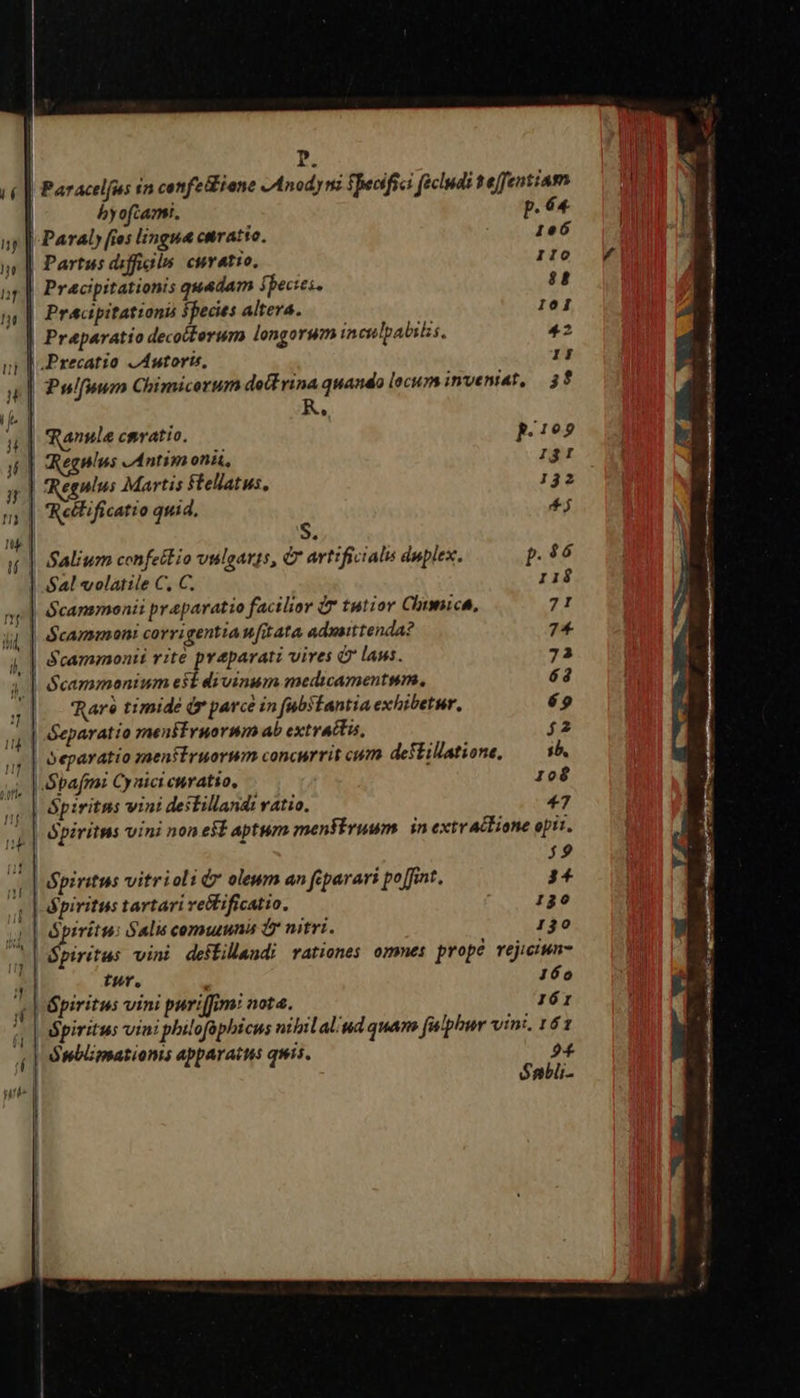 P.
Paracelſus in confectione Anodyni ſpecifici ſecludi 5 eſſentiam
hyoſciami. p. 64
Paralyſies linguæ curatio. 106
Partus difficilis curatio. 110
Præcipitationis quædam ſpecies. 88
Præcipitationis ſpecies altera. 101
Præparatio decoctorum longorum inculpabilis. 42
Precatio Autoris. 15
Pulſuum Chimicorum doctrina quando locum inveniat, 38
R.
Ranulæ curatio. p. 109
Regulus Antimonii. 131
Regulus Martis ſtellatus. 132
Rectificatio quid. 45
S.
Salium confectio vulgaris, & artificialis duplex. p. 86
Sal volatile C. C. 118
Scammonii præparatio facilior & tutior Chimica, 71
Scammoni corrigentia uſitata admittenda? 74
Scammonii rite præparati vires & laus. 73
Scammonium eſt divinum medicamentum. 68
Rarò timidè & parcè in ſubſtantia exhibetur. 69
Separatio menſtruorum ab extractis, 52
Separatio menſtruorum concurrit cum deſtillatione, ib.
Spaſmi Cynici curatio. 108
Spiritus vini deſtillandi ratio. 47
Spiritus vini non eſt aptum menſtruum in extractione opii.
59
Spiritus vitrioli & oleum an ſeparari poſſint. 34
Spiritus tartari rectificatio. 130
Spiritus Salis communis & nitri. 130
Spiritus vini deſtillandi rationes omnes propè rejiciun-
tur. 160
Spiritus vini puriſſimi notæ. 161
Spiritus vini philoſophicus nihil aliud quam ſulphur vini. 161
Sublimationis apparatus quis. 94
Subli-